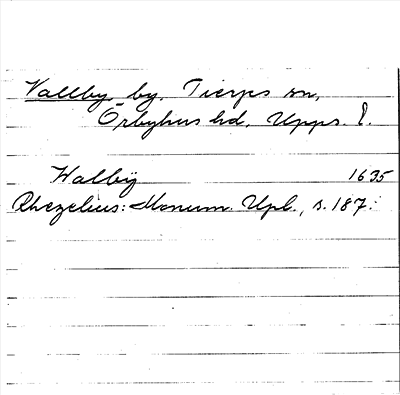 Vallby, by, Tierps sn,
Örbyhus hd, Upps. l.
Walbÿ 1635
Rhezelius: Monum. Upl., s. 187.